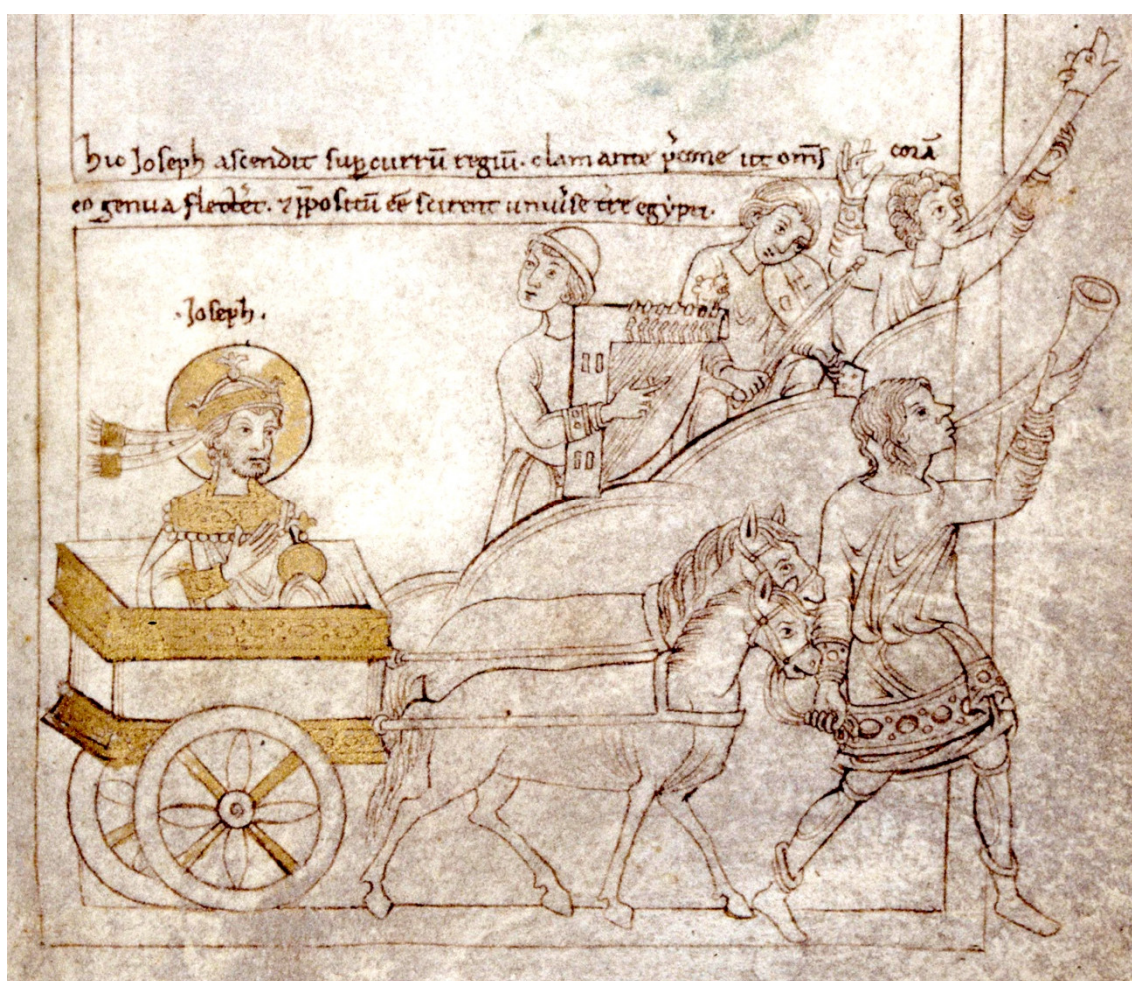 hic Joseph ascendit sup currū regiū. clamante p̄cone ut om̅s corā
eo genua flect̄et. ⁊ p̄positū eē scirent uniu̓se tr̄e egypti.
.Joseph.